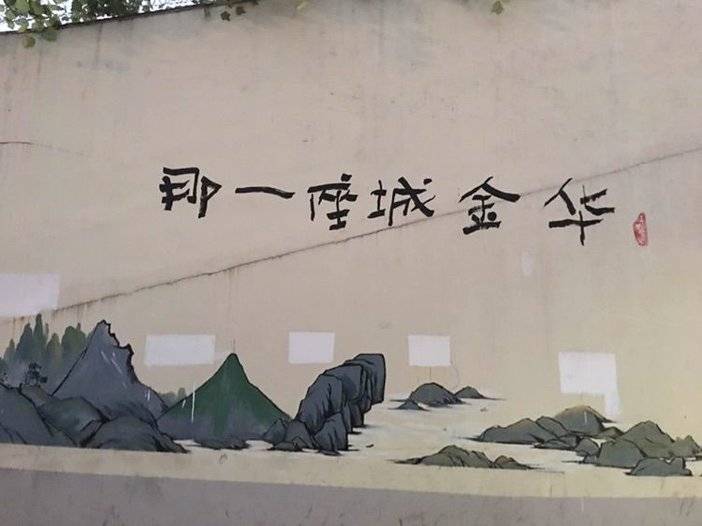 那一座城金华